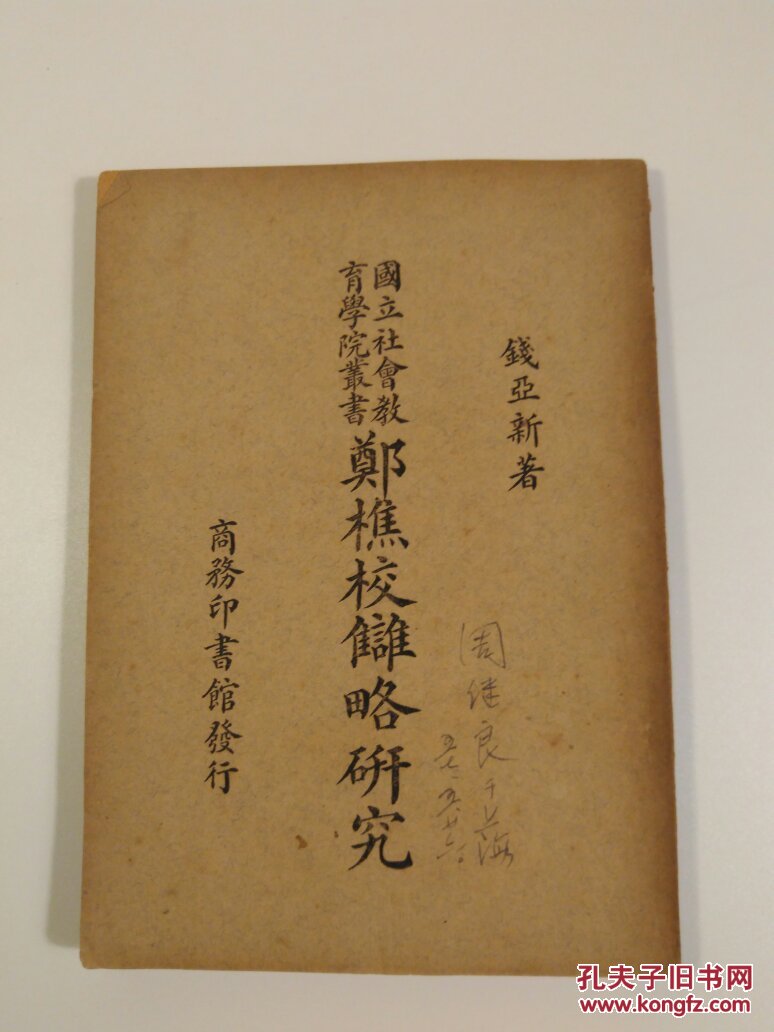 錢亞新著
國立社會教
育學院叢書
鄭樵校讎略研究
商務印書館發行
周继良于上海
孔夫子旧书网
www.kongfz.com